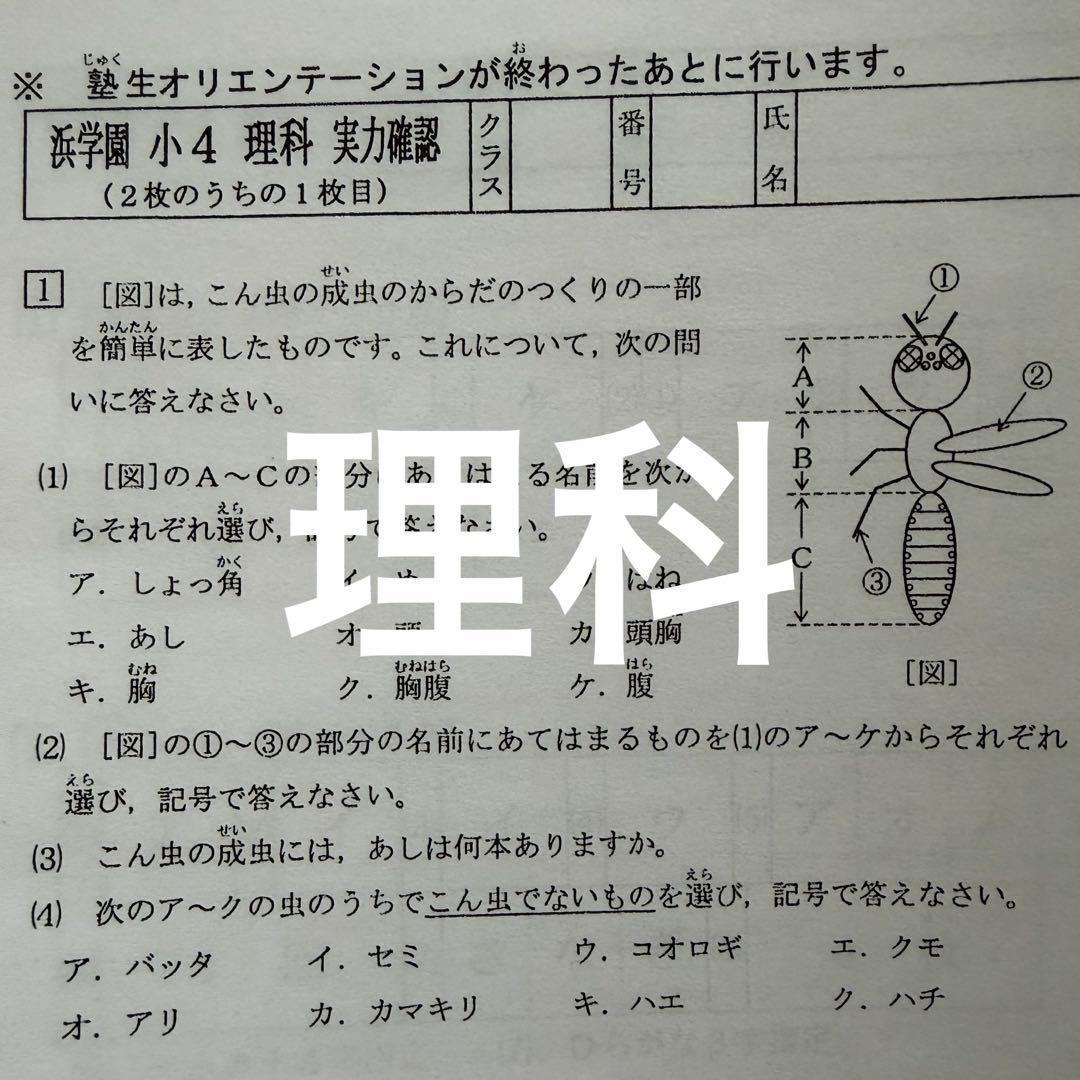 ※ 塾生オリエンテーションが終わったあとに行います。
じゅく
お
浜学園 小4 理科 実力確認
(2枚のうちの1枚目)
クラス
番号
氏名
1 [図]は，こん虫の成虫のからだのつくりの一部
せい
を簡単に表したものです。これについて，次の問
かんたん
いに答えなさい。
(1) [図]のA～Cの 分 あ は る名前を次か
らそれぞれ選び， で答えなさい。
えら
ア．しょっ角
かく
イ．め
はね
エ．あし
オ．頭
カ．頭胸
キ．胸
むね
ク．胸腹
むねはら
ケ．腹
はら
①
②
③
A
B
C
[図]
理科
(2) [図]の①～③の部分の名前にあてはまるものを(1)のア～ケからそれぞれ
選び，記号で答えなさい。
えら
(3) こん虫の成虫には，あしは何本ありますか。
せい
(4) 次のア～クの虫のうちでこん虫でないものを選び，記号で答えなさい。
えら
ア．バッタ イ．セミ ウ．コオロギ エ．クモ
オ．アリ カ．カマキリ キ．ハエ ク．ハチ